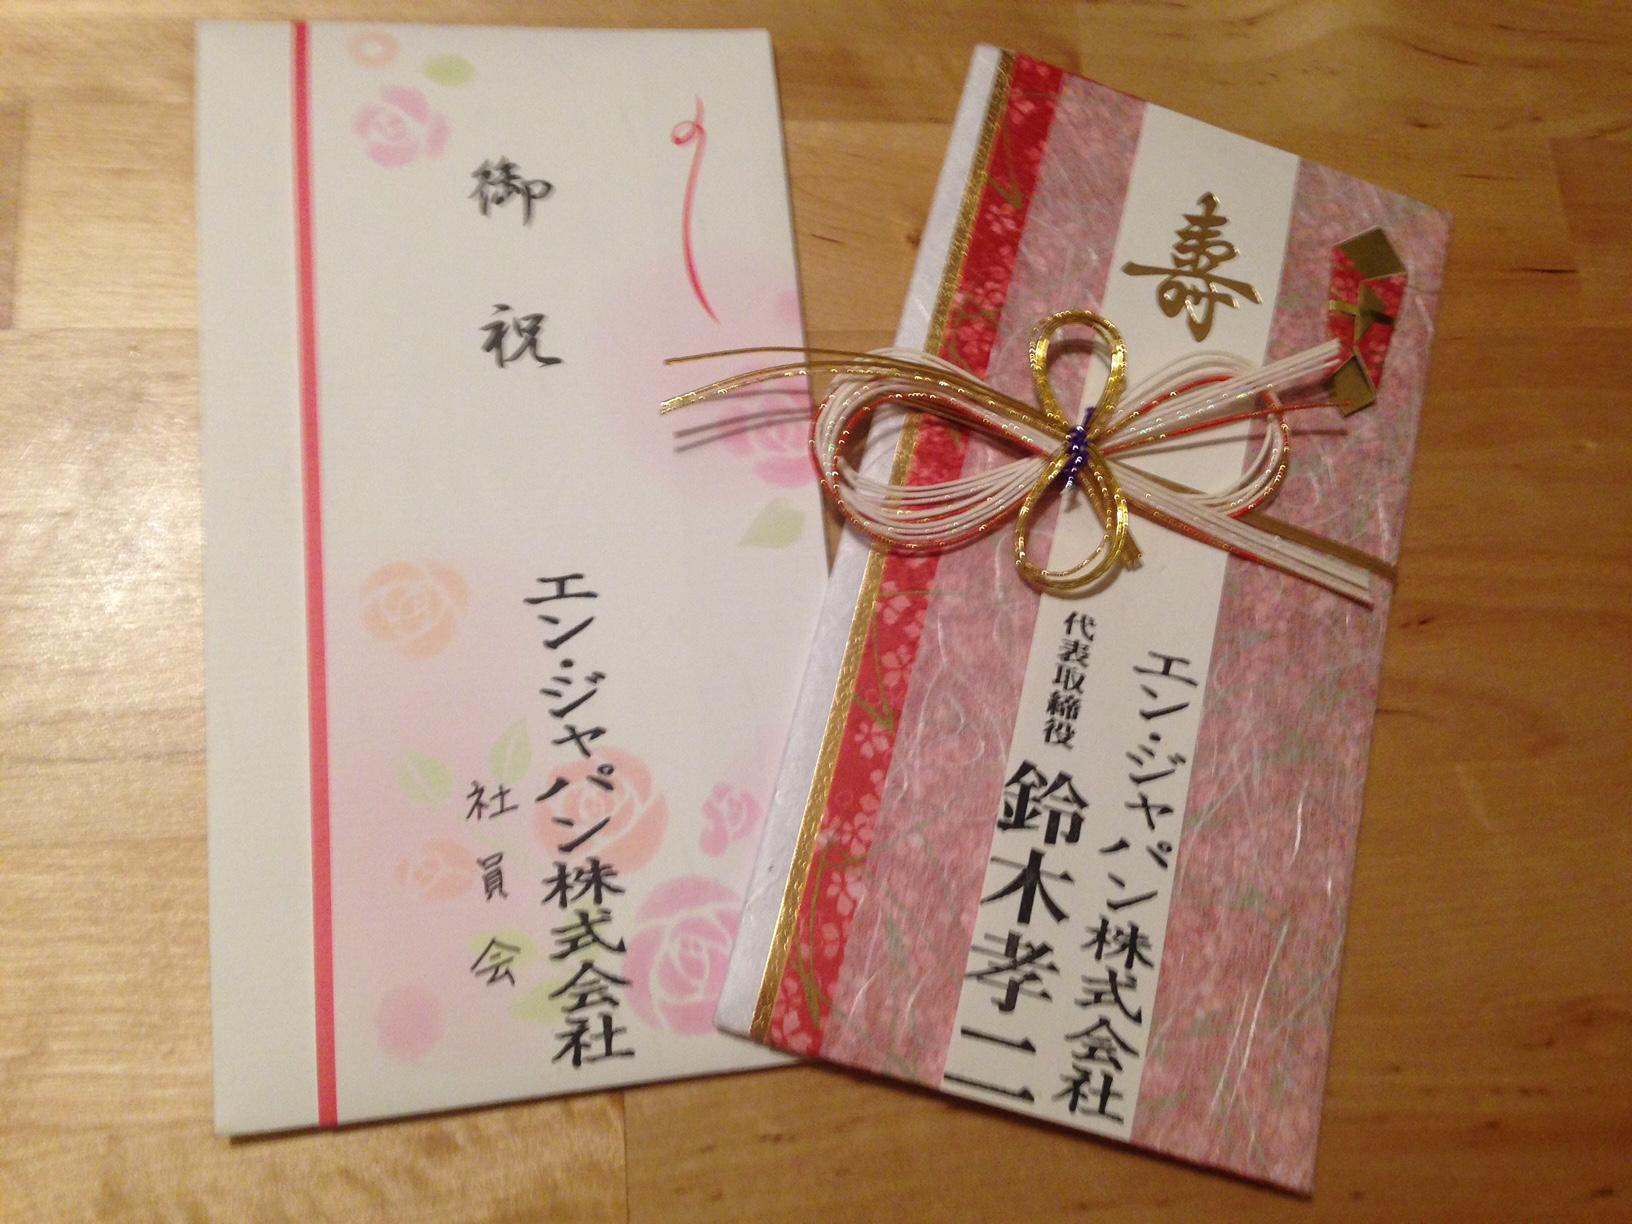 御祝
エン・ジャパン株式会社
社員会
寿
エン・ジャパン株式会社
代表取締役 鈴木孝二